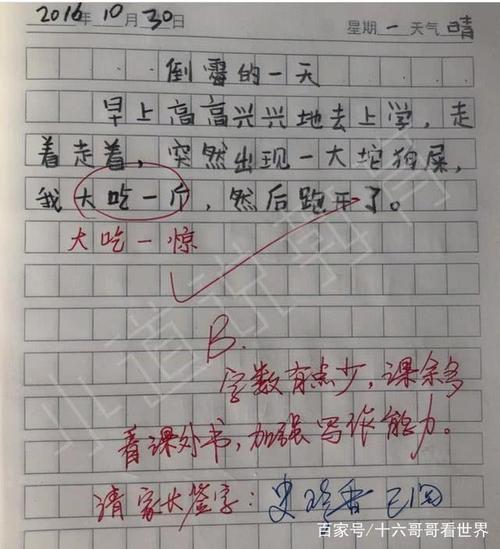 2016年10月30日 星期一 天气晴
倒霉的一天
早上高高兴兴地去上学,走
着走着,突然出现一大坨狗屎,
我大吃一斤,然后跑开了。
大吃一惊
B.
字数有点少,课余多
看课外书,加强写作能力。
请家长签字: 已阅
百家号/十六哥哥看世界